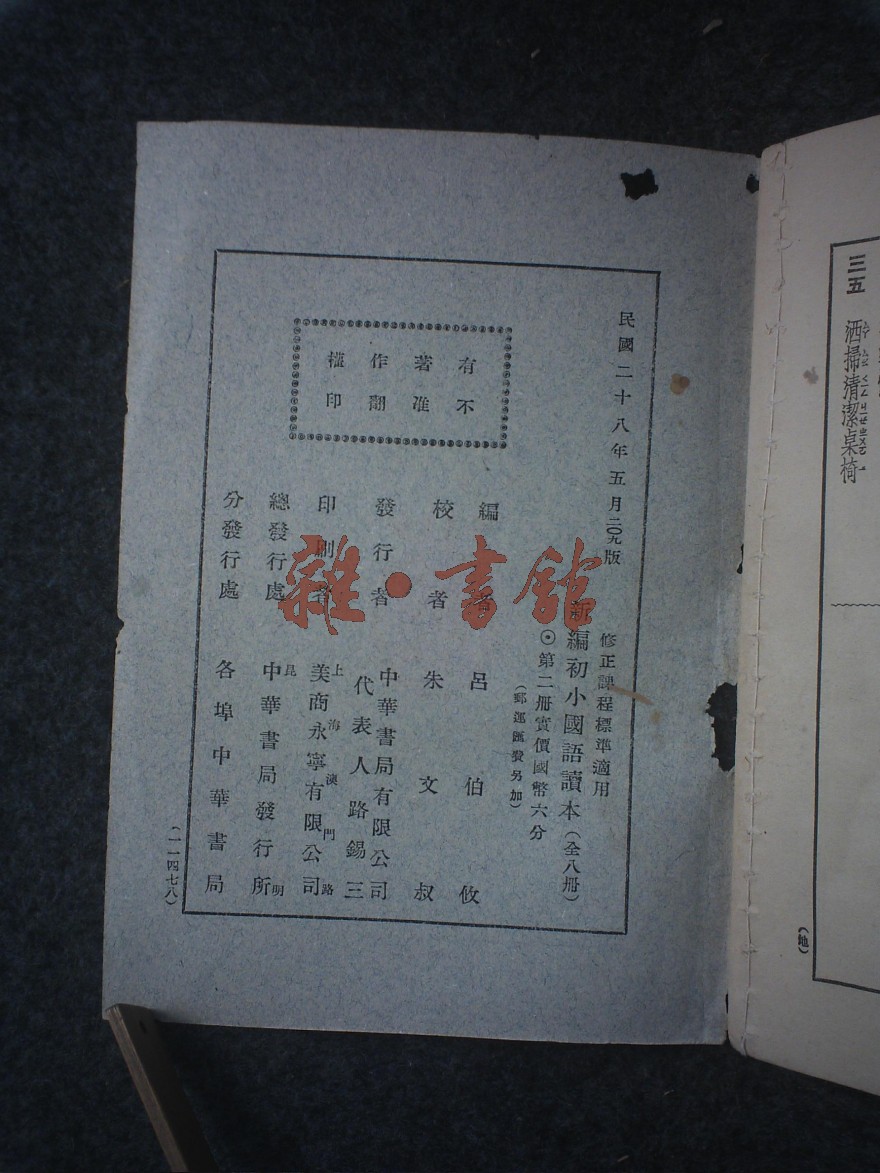 民國二十八年五月二〇九版
修正課程標準適用
新編初小國語讀本（全八冊）
⊙第二冊實價國幣六分
（郵運匯費另加）
有不
著准
作翻
權印
編者 呂伯攸
校者 朱文叔
發行者 中華書局有限公司
代表人路錫三
印刷者 上海澳門路
美商永寧有限公司
總發行處 昆明
中華書局發行所
分發行處 各埠中華書局
（一一四七八）
雜·書館
三五 洒掃清潔桌椅
（地）